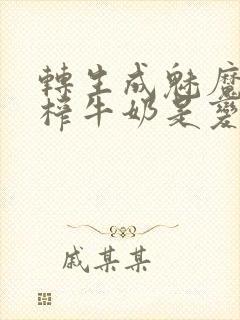 轉生成魅魔
榨牛奶是變
戚某某